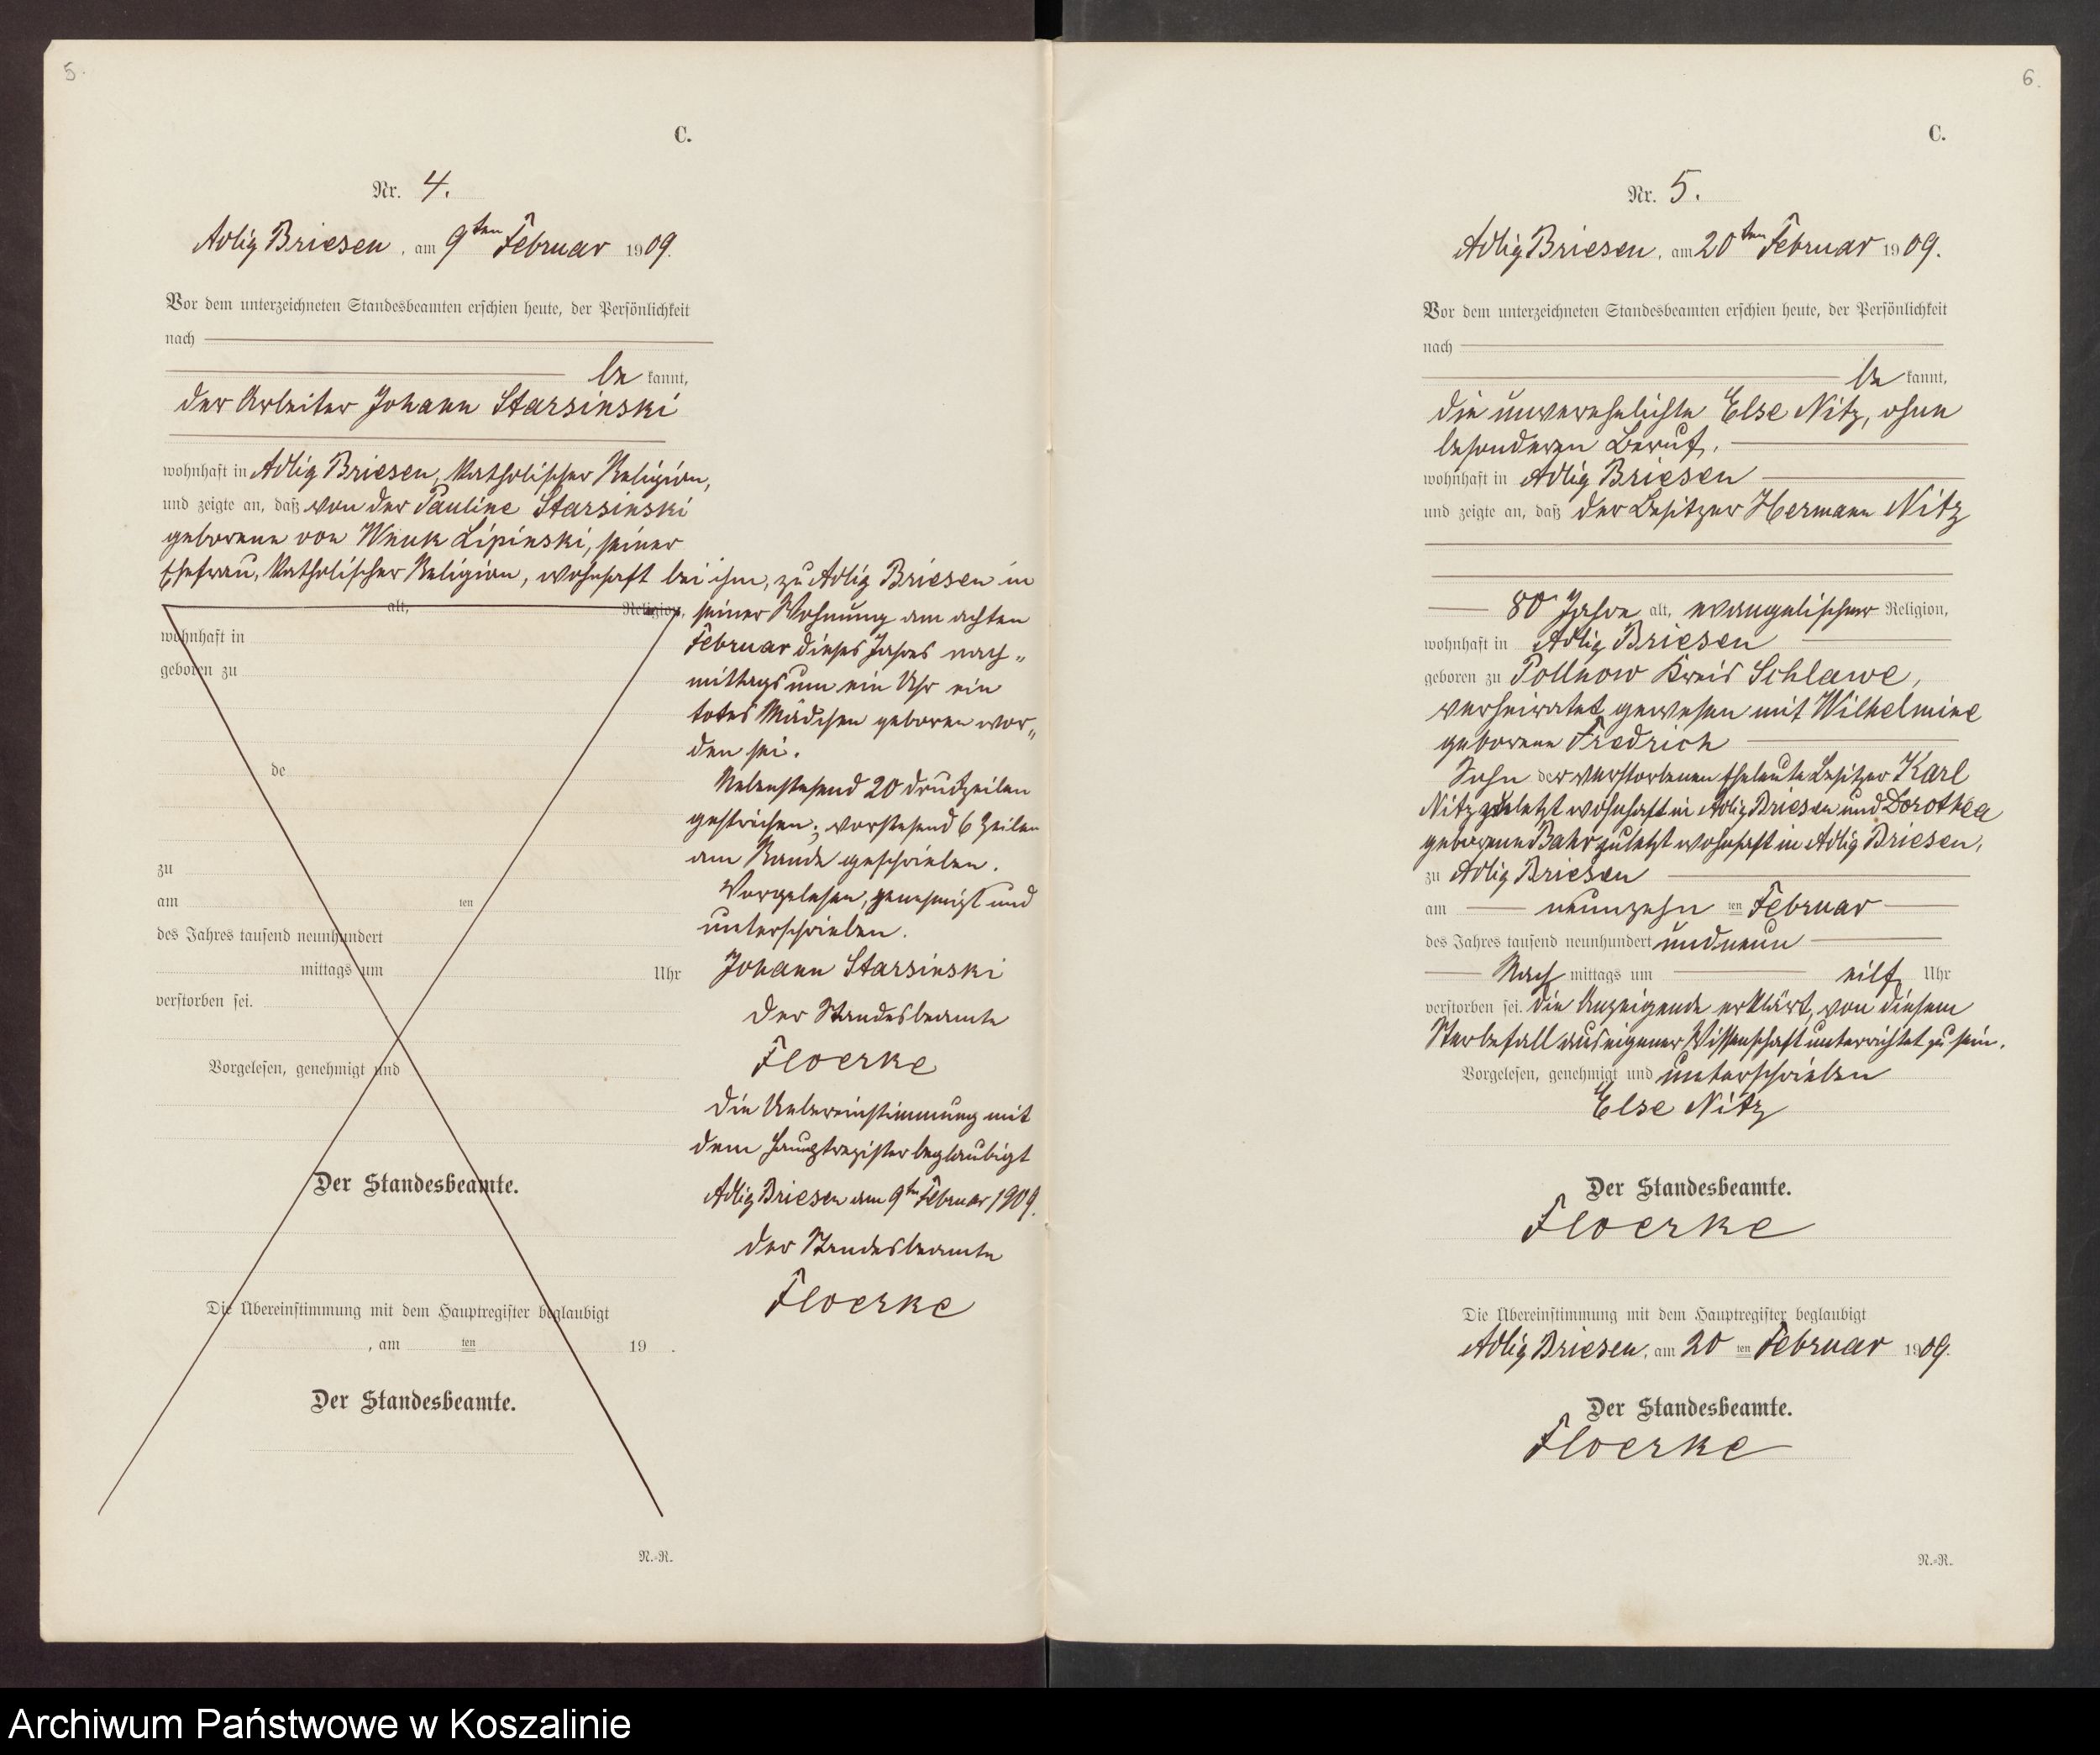 5.
C.
Nr. 4.
Adlig Briesen, am 9ten Februar 1909.
Vor dem unterzeichneten Standesbeamten erschien heute, der Persönlichkeit
nach
be kannt,
der Arbeiter Johann Starsinski
wohnhaft in Adlig Briesen, katholischer Religion,
und zeigte an, daß von der Pauline Starsinski
geborene von Wnuk Lipinski, seiner
Ehefrau, katholischer Religion, wohnhaft bei ihm, zu Adlig Briesen in
alt, Religion,
wohnhaft in
geboren zu
de
zu
am ten
des Jahres tausend neunhundert
mittags um Uhr
verstorben sei.
Vorgelesen, genehmigt und
Der Standesbeamte.
Die Übereinstimmung mit dem Hauptregister beglaubigt
, am ten 19 .
Der Standesbeamte.
N.-R.
seiner Wohnung am achten
Februar dieses Jahres nach„
mittags um ein Uhr ein
totes Mädchen geboren wor„
den sei.
Nebenstehend 20 Druckzeilen
gestrichen; vorstehend 6 Zeilen
am Rande geschrieben.
Vorgelesen, genehmigt und
unterschrieben.
Johann Starsinski
Der Standesbeamte
Floerke
Die Uebereinstimmung mit
dem Hauptregister beglaubigt
Adlig Briesen am 9ten Februar 1909.
Der Standesbeamte
Floerke
6.
C.
Nr. 5.
Adlig Briesen, am 20ten Februar 1909.
Vor dem unterzeichneten Standesbeamten erschien heute, der Persönlichkeit
nach
be kannt,
die unverehelichte Else Nitz, ohne
besonderen Beruf,
wohnhaft in Adlig Briesen
und zeigte an, daß der Besitzer Hermann Nitz
80 Jahre alt, evangelischer Religion,
wohnhaft in Adlig Briesen
geboren zu Pollnow Kreis Schlawe,
verheiratet gewesen mit Wilhelmine
geborene Fredrich
Sohn der verstorbenen Eheleute Besitzer Karl
Nitz zuletzt wohnhaft in Adlig Briesen und Dorothea
geborene Bahr zuletzt wohnhaft in Adlig Briesen,
zu Adlig Briesen
am neunzehn ten Februar
des Jahres tausend neunhundert und neun
Nach mittags um eilf Uhr
verstorben sei. Die Anzeigende erklärt, von diesem
Sterbefall aus eigener Wissenschaft unterrichtet zu sein.
Vorgelesen, genehmigt und unterschrieben
Else Nitz
Der Standesbeamte.
Floerke
Die Übereinstimmung mit dem Hauptregister beglaubigt
Adlig Briesen, am 20 ten Februar 1909.
Der Standesbeamte.
Floerke
N.-R.
Archiwum Państwowe w Koszalinie